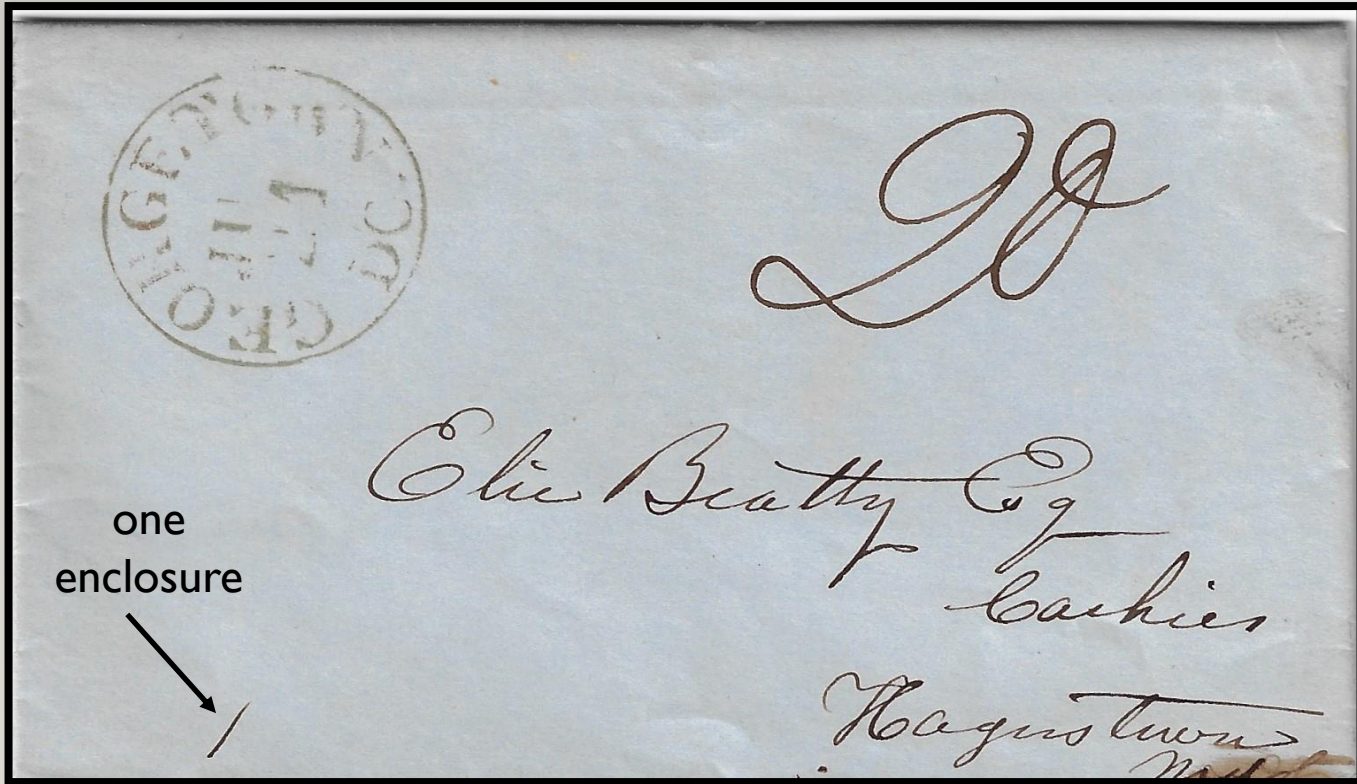 GEORGETOWN. DC.
21
20
Elie Beatty Esq
Cashier
Hagerstown
Md
one
enclosure
1